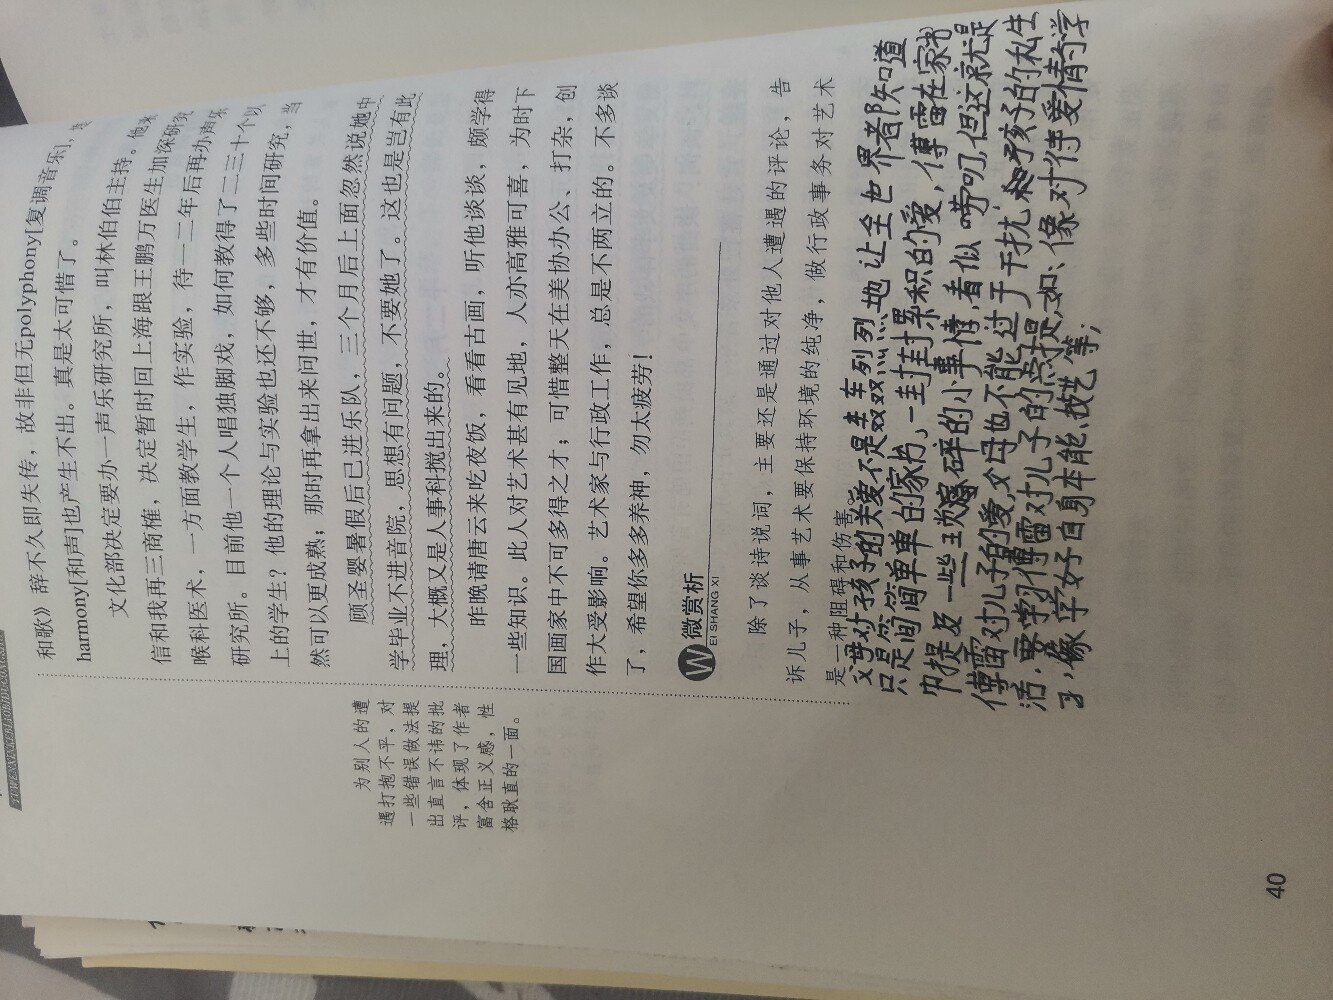 和歌》辞不久即失传，故非但无polyphony[复调音乐]，
harmony[和声]也产生不出。真是太可惜了。
文化部决定要办一声乐研究所，叫林伯伯主持。他来
信和我再三商榷，决定暂时回上海跟王鹏万医生加深研究
喉科医术，一方面教学生，作实验，待一二年后再办声乐
研究所。目前他一个人唱独脚戏，如何教得了二三十个以
上的学生？他的理论与实验也还不够，多些时间研究，当
然可以更成熟；那时再拿出来问世，才有价值。
顾圣婴暑假后已进乐队，三个月后上面忽然说她中
学毕业不进音院，思想有问题，不要她了。这也是岂有此
理，大概又是人事科搅出来的。
昨晚请唐云来吃夜饭，看看古画，听他谈谈，颇学得
一些知识。此人对艺术甚有见地，人亦高雅可喜，为时下
国画家中不可多得之才；可惜整天在美协办公、打杂，创
作大受影响。艺术家与行政工作，总是不两立的。不多谈
了，希望你多多养神，勿太疲劳！
为别人的遭
遇打抱不平，对
一些错误做法提
出直言不讳的批
评，体现了作者
富含正义感，性
格耿直的一面。
W微赏析
EI SHANG XI
除了谈诗说词，主要还是通过对他人遭遇的评论，告
诉儿子，从事艺术要保持环境的纯净，做行政事务对艺术
是一种阻碍和伤害。
父母对孩子的关爱不是轰轰烈烈地让全世界都知道
只是简简单单的家书，一封封累积的爱，傅雷在家书
中提及一些琐碎的小事情，看似唠叨，但这就是
傅雷对儿子的爱，父母也不能过于干扰孩子的私生
活，要学习傅雷对儿子的点提，如、像对待爱情的学
习，像学好自身本能、技艺等；
40